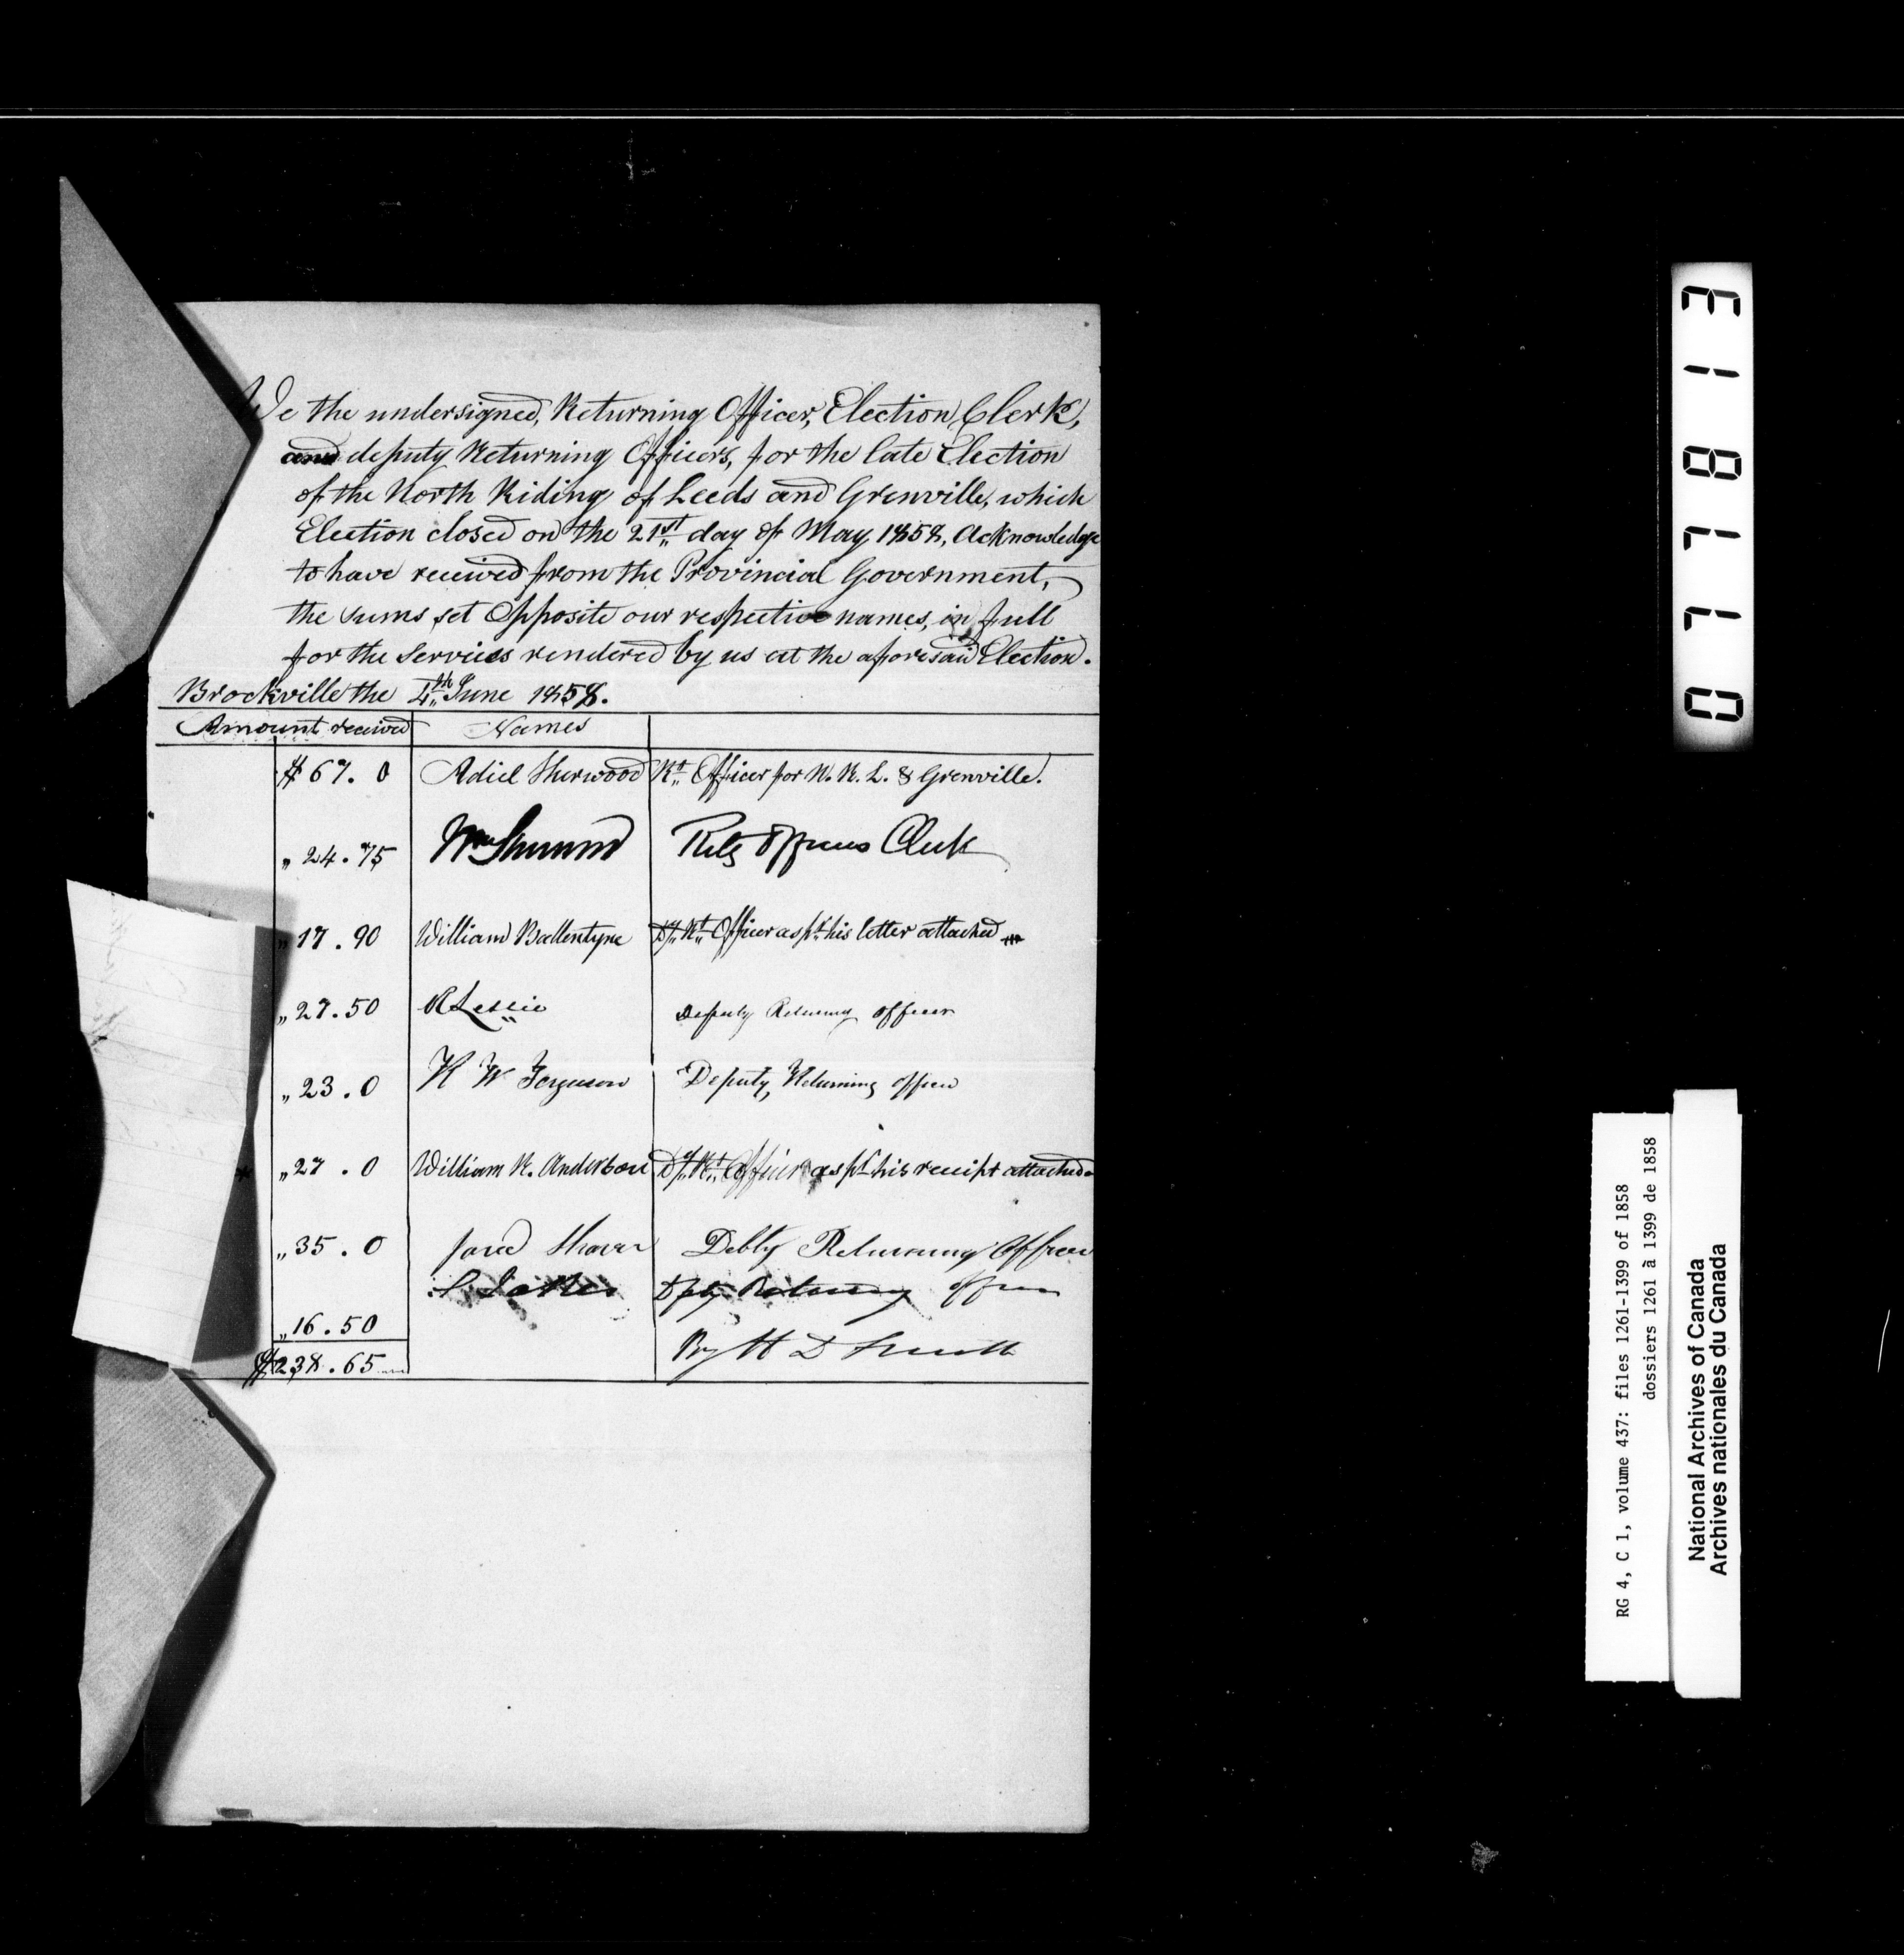 We the undersigned, Returning Officer, Election Clerk,
and deputy Returning Officers, for the late Election
of the North Riding of Leeds and Grenville, which
Election closed on the 21st day of May 1858, Acknowledge
to have received from the Provincial Government,
the sums set Opposite our respective names, in full
for the Services rendered by us at the aforesaid Election.
Brockville the 4th June 1858.
Amount received Names
$ 67. 0 Adiel Sherwood Rt Officer for N. R. L. & Grenville.
„ 24. 75 Wm Officers Clerk
„ 17. 90 William Ballentyne Dy Rt Officer as pr his letter attached
„ 27. 50 R Leslie Deputy Returning officer
„ 23. 0 R W Ferguson Deputy Returning officer
* „ 27. 0 William R. Anderson Dy Rt Officer as pr his receipt attached
„ 35. 0 Returning Officer
Dpty Returning officer
„ 16. 50
By H D Smith
$ 238. 65
3 1 8 7 7 0
RG 4, C 1, volume 437: files 1261-1399 of 1858
dossiers 1261 à 1399 de 1858
National Archives of Canada
Archives nationales du Canada